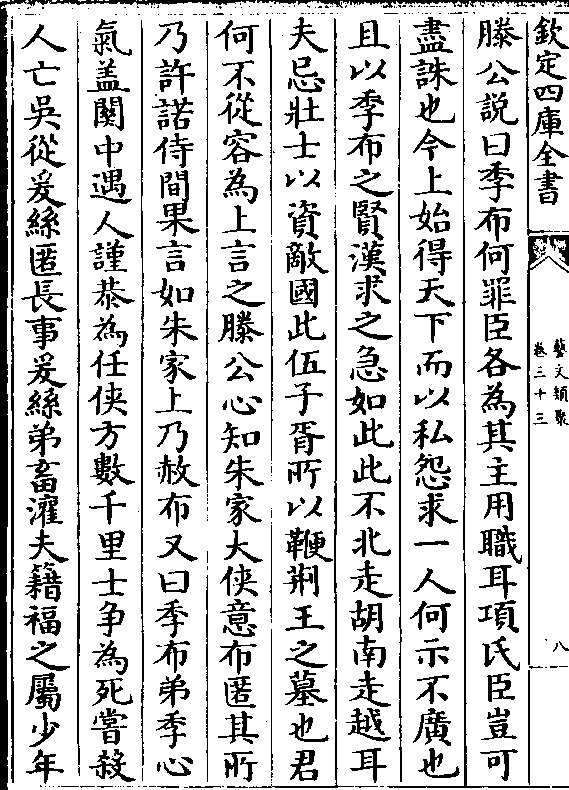 欽定四庫全書
藝文類聚
卷三十三
八
滕公說曰季布何罪臣各為其主用職耳項氏臣豈可
盡誅也今上始得天下而以私怨求一人何示不廣也
且以季布之賢漢求之急如此此不北走胡南走越耳
夫忌壯士以資敵國此伍子胥所以鞭荆王之墓也君
何不從容為上言之滕公心知朱家大俠意布匿其所
乃許諾侍間果言如朱家上乃赦布又曰季布弟季心
氣盖闗中遇人謹恭為任俠方數千里士争為死嘗殺
人亡吳從爰絲匿長事爰絲弟畜灌夫籍福之屬少年